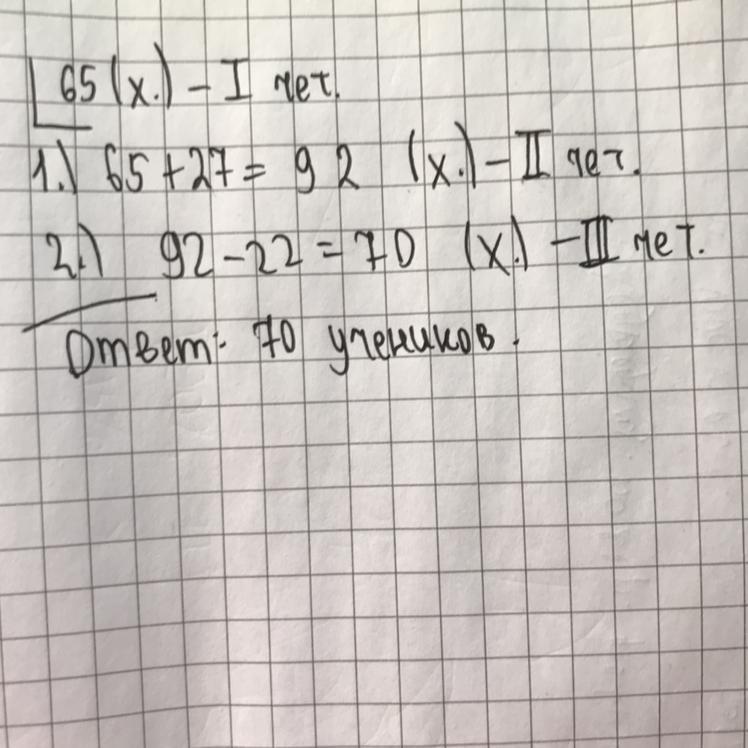 65 (х.) - I чет.
1.) 65+27= 92 (х.) - II чет.
2.) 92-22=70 (х.) - III чет.
Ответ: 70 учеников.